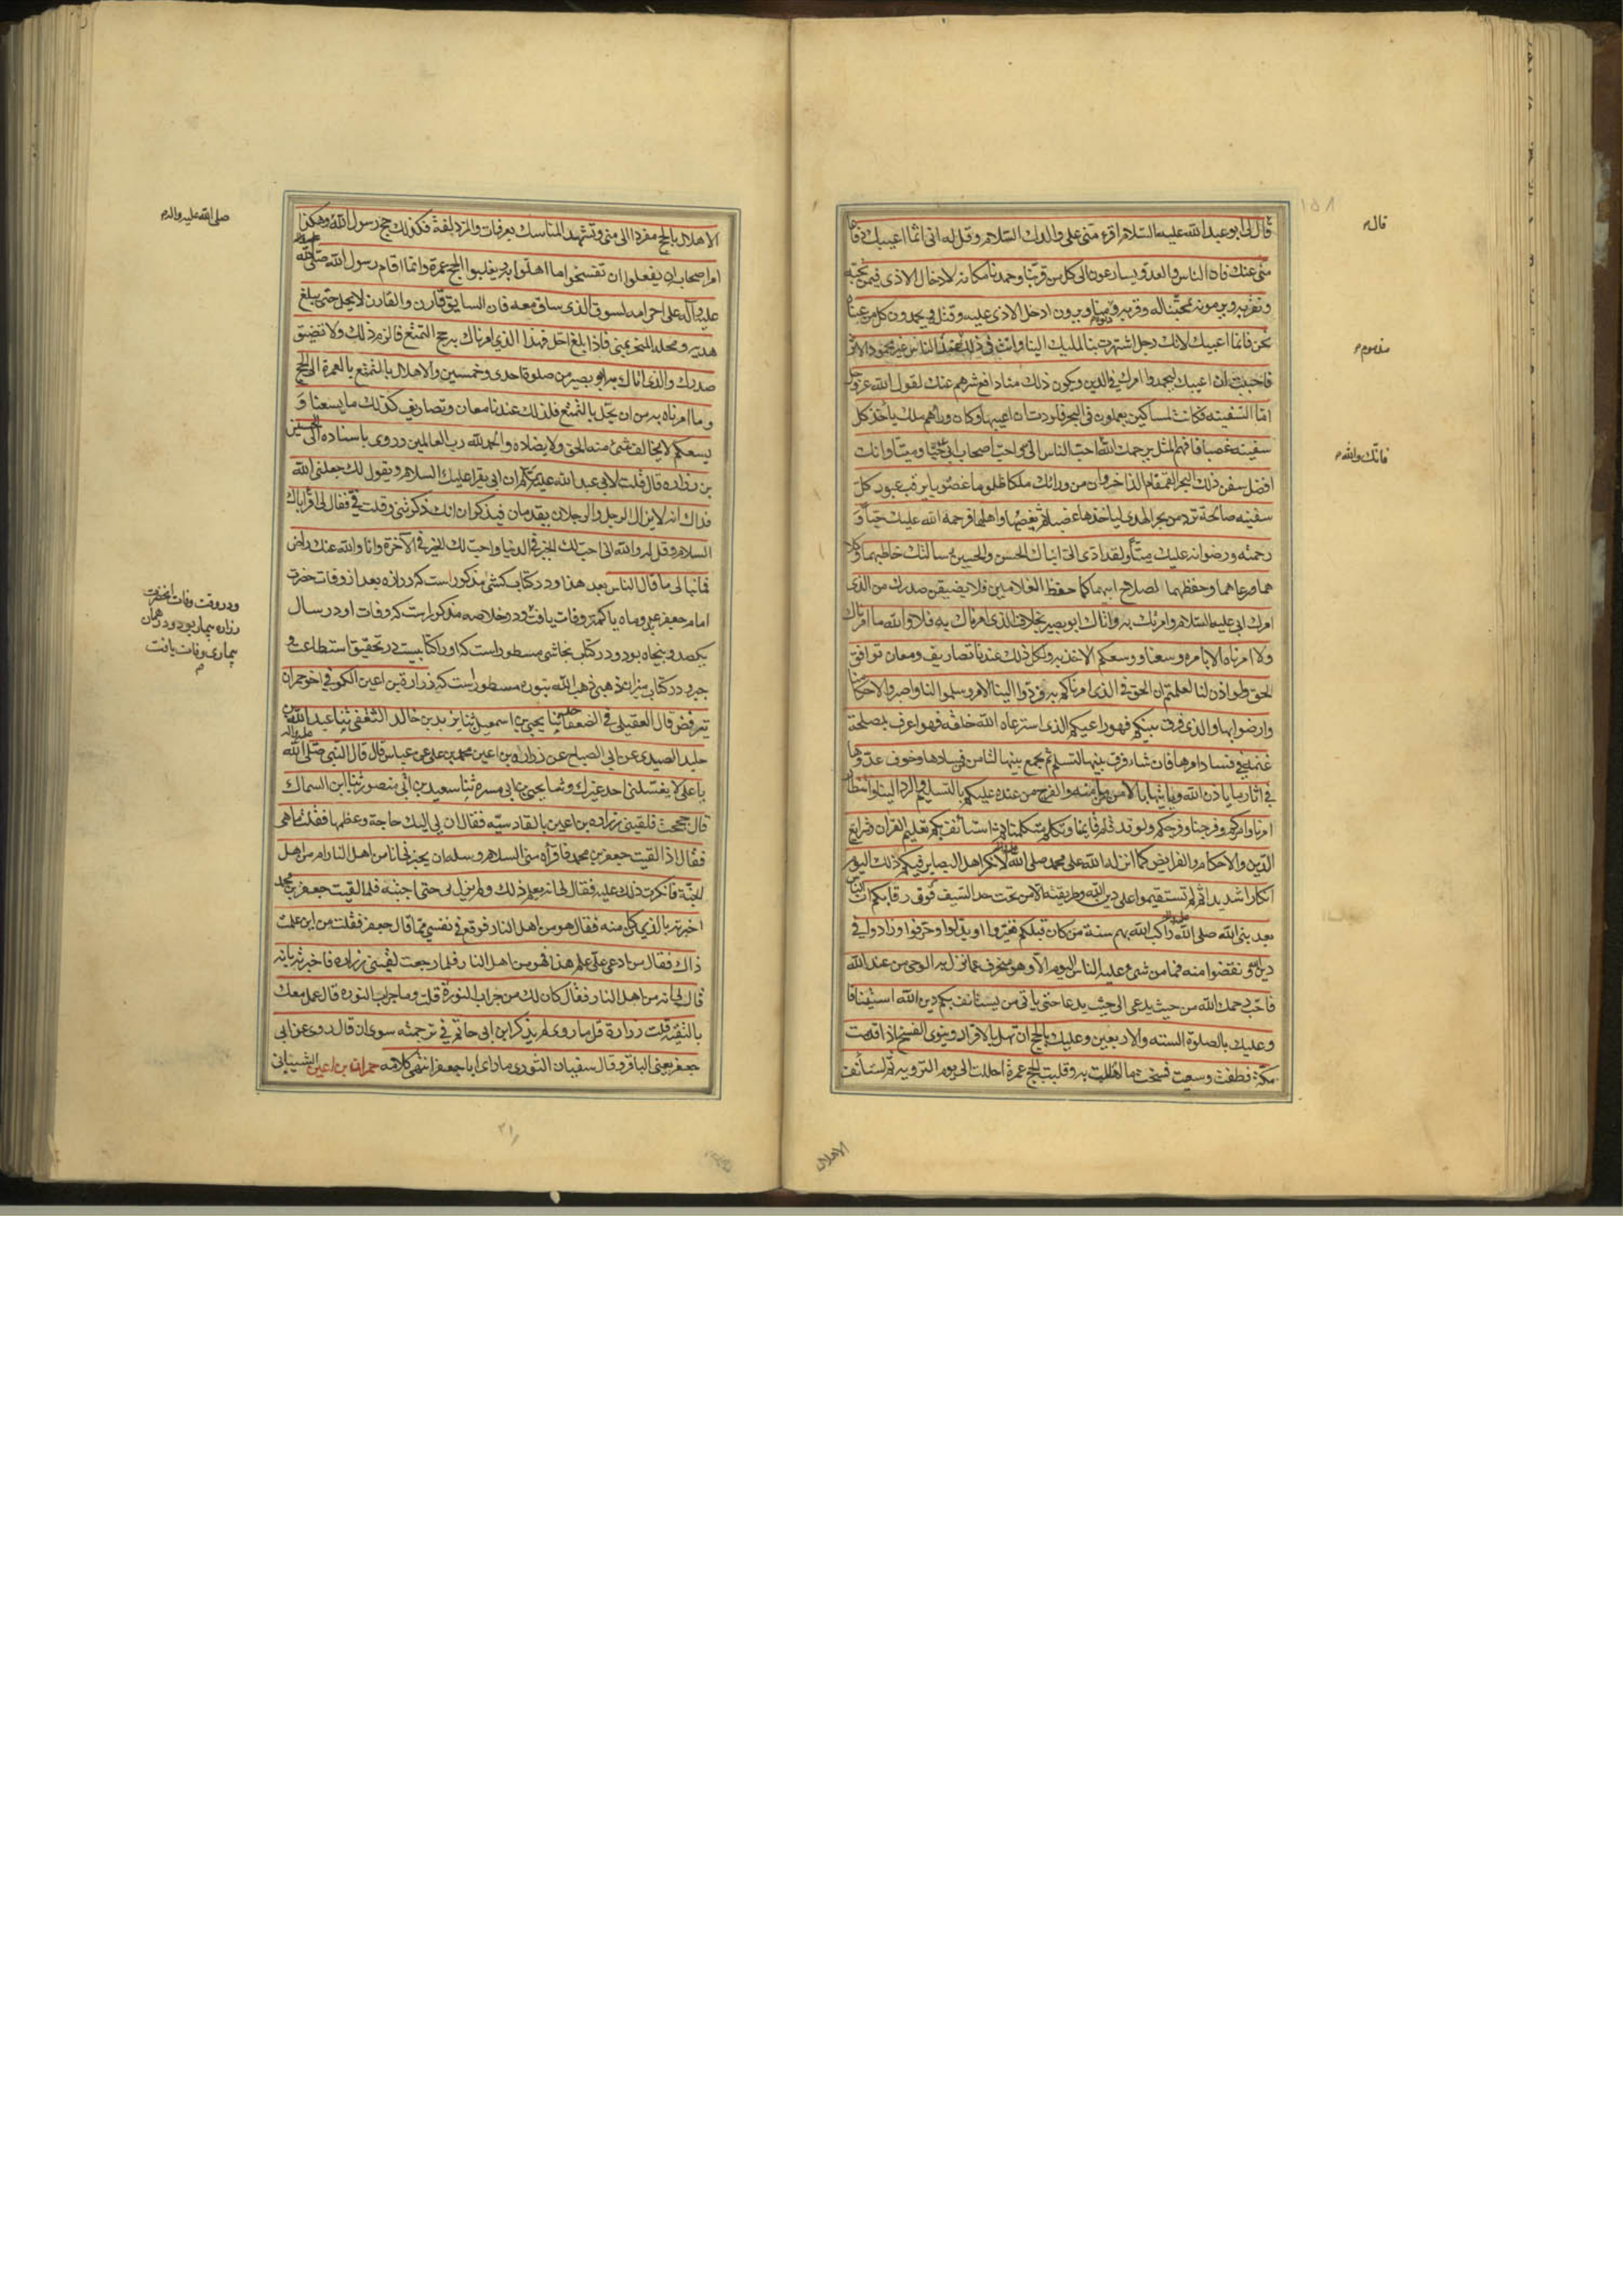 ١٥٨
قال لى ابو عبد الله عليه السلام اقرء منى على والدك السلام و قل له انى انما اعيبك دفاعا
منى عنك فان الناس و العدو يسارعون الى كل من قربنا و حمدنا مكانه لادخال الاذى فيمن نحبه
و نقربه و يرمونه لمحبتنا له و قربه و دنوه منا و يرون ادخال الاذى عليه و قتله و يحمدون كل من عبناه
نحن فانما اعيبك لانك رجل اشتهرت بنا لميلك الينا و انت فى ذلك عند الناس غير محمود الاثر
فاحببت ان اعيبك ليحمدوا امرك فى الدين و يكون ذلك منا دافع شرهم عنك لقول الله عز و جل
اما السفينه فكانت لمساكين يعملون فى البحر فاردت ان اعيبها و كان وراهم ملك يأخذ كل
سفينه غصبا فافهم المثل يرحمك الله احب الناس الى و احب اصحاب ابى حيا و ميتا و انك
افضل سفن ذلك البحر القمقام الذاخر و ان من ورائك ملكا ظلوما غصوبا يرقب عبور كل
سفينه صالحة ترد من بحر الهدى لياخذها غصبا ثم يغصبها و اهلها فرحمة الله عليك حيا و
رحمته و رضوانه عليك ميتا و لقد ادى الى ابناك الحسن و الحسين رسالتك حاطهما و كلا
هما و رعاهما و حفظهما لصلاح ابيهما كما حفظ الغلامين فلا يضيقن صدرك من الذى
امرك ابى عليه السلام و امرتك به و اتاك ابو بصير بخلاف الذى امرناك به فلا و الله ما امرناك
و لا امرناه الا بامر وسعنا و وسعكم الاخذ به و لكل ذلك عندنا تصاريف و معان توافق
الحق و لو اذن لنا لعلمتم ان الحق فى الذى امرناكم به فردوا الينا الامر و سلموا لنا و اصبروا لاحكامنا
و ارضوا بها و الذى فرق بينكم فهو راعيكم الذى استرعاه الله خلقه فهو اعرف بمصلحة
غنمه فى فساد امرها فان شاء فرق بينها لتسلم ثم يجمع بينها لتامن من فسادها و خوف عدوها
فى اثار ما ياذن الله و ياتيها بالامن من مامنه و الفرج من عنده عليكم بالتسليم و الرد الينا و انتظار
امرنا و امركم و فرجنا و فرجكم و لو قد قام قايمنا و تكلم متكلمنا ثم استأنف بكم تعليم القران و شرايع
الدين و الاحكام و الفرايض كما انزله الله على محمد صلى الله عليه و آله لانكر اهل البصاير فيكم ذلك اليوم
انكارا شديدا ثم لم تستقيموا على دين الله و طريقته الا من تحت حد السيف فوق رقابكم ان الناس
بعد نبى الله صلى الله عليه و آله ركب الله بهم سنة من كان قبلكم فغيروا و بدلوا و حرفوا و زادوا فى
دين الله و نقضوا منه فما من شىء عليه الناس اليوم الا و هو منحرف عما نزل به الوحى من عند الله
فاجب رحمك الله من حيث يدعى الى حيث يدعا حتى ياتى من يستانف بكم دين الله استينافا
و عليك بالصلوة السته و الاربعين و عليك بالحج ان تهل بالافراد و ينوى الفسخ اذا قدمت
مكة فطفت و سعيت فسخت ما اهللت به و قلبت الحج عمرة احللت الى يوم الترويه ثم استأنف
قال م
مذموم م
فانك والله م
الاهلال
الاهلال بالحج مفردا الى منى و تشهد المناسك بعرفات و المزدلفة فكذلك حج رسول الله و هكذا
امر اصحابه ان يفعلوا ان تفسخوا ما اهلوا به و يقلبوا الحج عمرة و انما اقام رسول الله صلى الله
عليه و آله على احرامه لسوق الذى ساق معه فان السايق قارن و القارن لا يحل حتى يبلغ
هديه و محله المنحر بمنى فاذا بلغ احل فهذا الذى امرناك به حج التمتع فالزم ذلك و لا تضيق
صدرك و الذى اتاك به ابو بصير من صلوة احدى و خمسين و الاهلال بالتمتع بالعمرة الى الحج
و ما امرناه به من ان يحل بالتمتع فلذلك عندنا معان و تصاريف كذلك ما يسعنا و
يسعكم لا يخالف شىء منه الحق و لا يضاده و الحمد لله رب العالمين و روى باسناده الى الحسين
بن زراره قال قلت لابى عبد الله عليه السلام ان ابى يقرا عليك السلام و يقول لك جعلنى الله
فداك انه لا يزال الرجل و الرجلان يقدمان فيذكران انك ذكرتنى و قلت فى فقال لى اقرأ اباك
السلام و قل له و الله انى احب لك الخير فى الدنيا و احب لك الخير فى الآخرة و انا و الله عنك راض
فما تبالى ما قال الناس بعد هذا و در كتاب كشى مذكور است كه زراره بعد از وفات حضرت
امام جعفر عم بدو ماه يا كمتر وفات يافت و در خلاصه مذكور است كه وفات او در سال
يكصد و پنجاه بود و در كتاب نجاشى مسطور است كه او را كتابيست در تحقيق استطاعت و
جبر و در كتاب ميزان ذهبى ذهب الله بنوره مسطور است كه زرارة بن اعين الكوفى اخو حمران
يترفض قال العقيلى فى الضعفا حدثنا يحيى بن اسمعيل ثنا يزيد بن خالد الثقفى ثنا عبد الله بن
خليد الصيدى عن ابى الصباح عن زراره بن اعين عن محمد بن على عن عباس قال قال النبى صلى الله عليه و آله
يا على لا يغسلنى احد غيرك و ثنا يحيى بن ابى مسره ثنا سعيد بن ابى منصور ثنا ابن السماك
قال حججت فلقينى زراره بن اعين بالقادسيه فقال ان لى اليك حاجة و عظمها فقلت ما هى
فقال اذا لقيت جعفر بن محمد فاقرأه منى السلام و سله ان يخبرنى انا من اهل النار ام من اهل
الجنة فانكرت ذلك عليه فقال لى انه يعلم ذلك و لم يزل بى حتى اجبته فلما لقيت جعفر بن محمد
اخبرته بالذى كان منه فقال هو من اهل النار فوقع فى نفسى مما قال جعفر فقلت من اين علمت
ذاك فقال من ادعى على علم هذا فهو من اهل النار فلما رجعت لقينى زراره فاخبرته بانه
قال لى انه من اهل النار فقال كان لك من جراب النورة قلت و ما جراب النوره قال عمل معك
بالتقيه قلت زرارة قل ما روى لم يذكر ابن ابى حاتم فى ترجمته سوى ان قال روى عن ابى
جعفر يعنى الباقر و قال سفيان الثورى ما راى ابا جعفر انتهى كلامه حمران بن اعين الشيبانى
صلى الله عليه واله م
و در وقت وفات آنحضرت
زراره بيمار بود و در همان
بيمارى وفات يافت
م
٢١